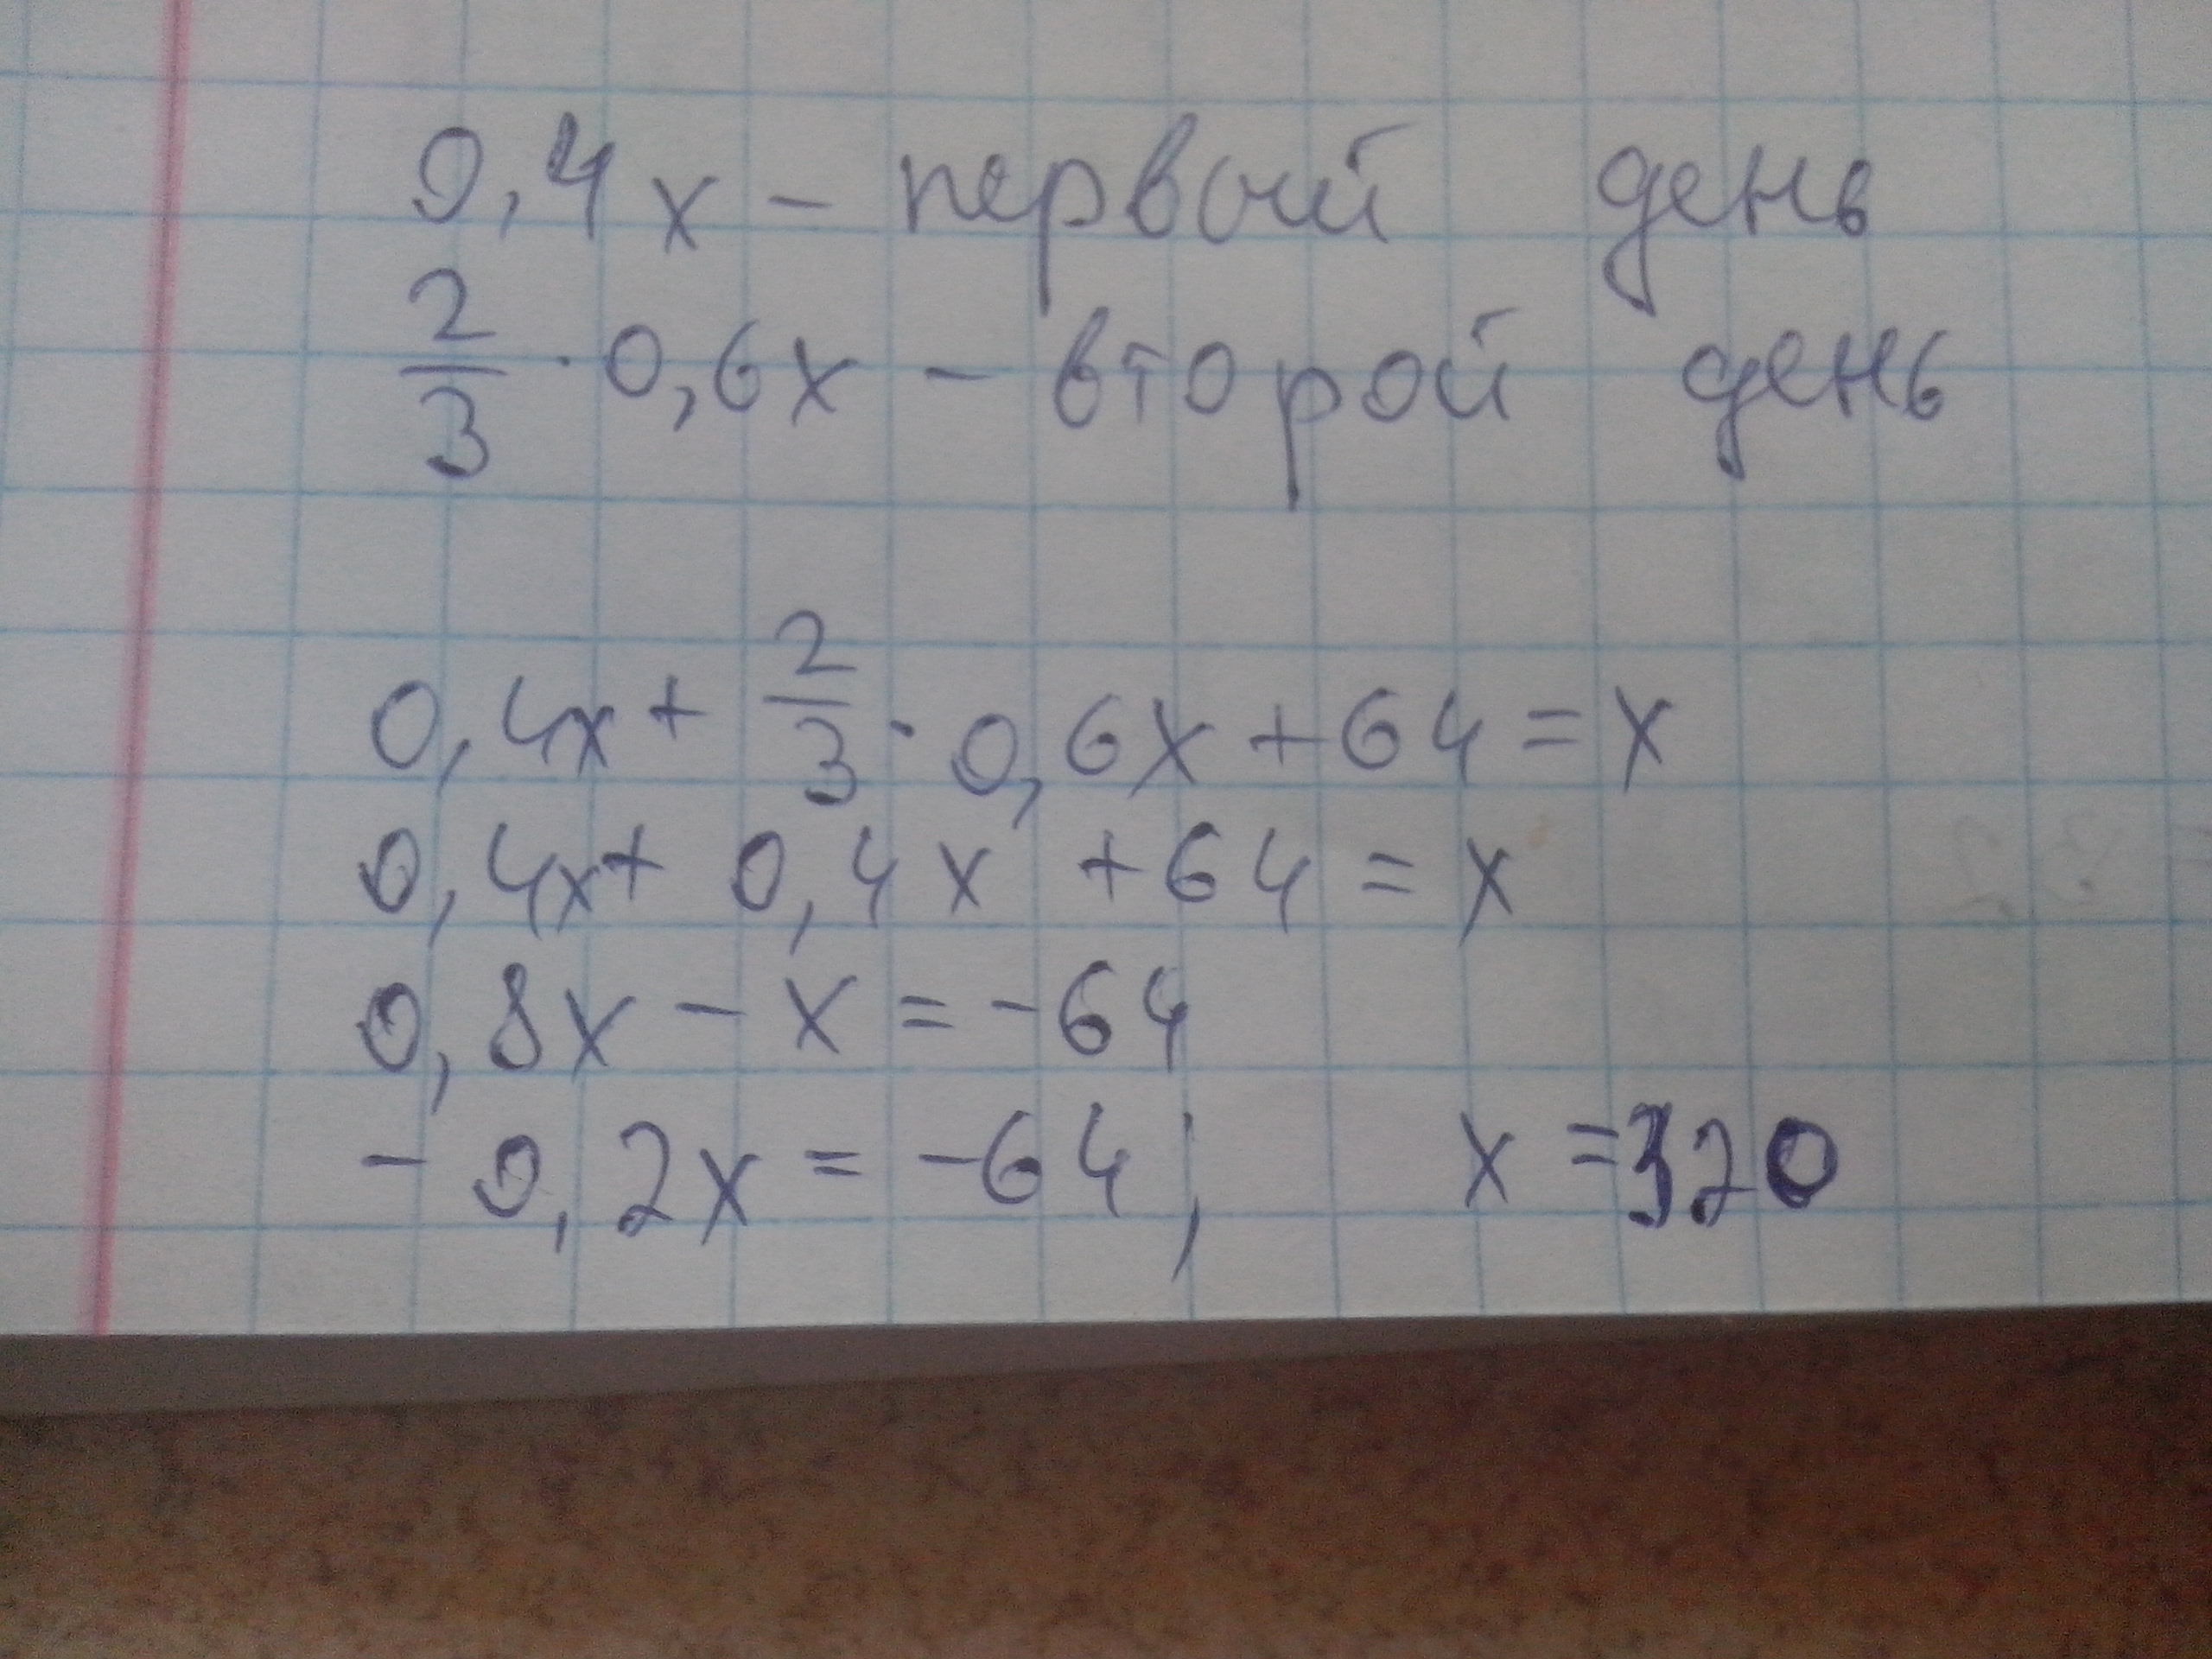 0,4x - первый день
2/3 · 0,6x - второй день
0,4x + 2/3 · 0,6x + 64 = x
0,4x + 0,4x + 64 = x
0,8x - x = -64
- 0,2x = -64; x = 320